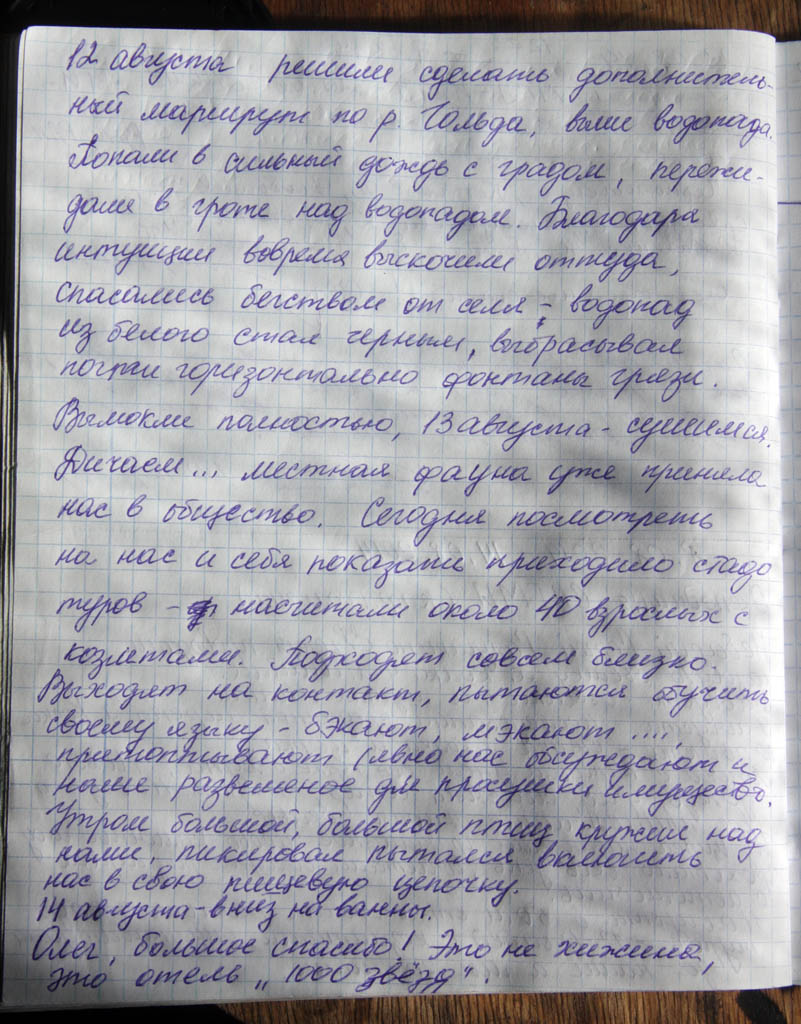 12 августа решили сделать дополнитель-
ный маршрут по р. Гольда, выше водопада.
Попали в сильный дождь с градом, пережи-
дали в гроте над водопадом. Благодаря
интуиции вовремя выскочили оттуда,
спасались бегством от селя; водопад
из белого стал черным, выбрасывал
почти горизонтально фонтаны грязи.
Вымокли полностью, 13 августа - сушимся.
Дичаем... местная фауна уже приняла
нас в общество. Сегодня посмотреть
на нас и себя показать приходило стадо
туров - насчитали около 40 взрослых с
козлятами. Подходят совсем близко.
Выходят на контакт, пытаются обучить
своему языку - бэкают, мэкают ....,
притоптывают (явно нас обсуждают и
наше развешеное для просушки имущество.
Утром большой, большой птиц кружил над
нами, пикировал пытался включить
нас в свою пищевую цепочку.
14 августа - вниз на ванны.
Олег, большое спасибо! Это не хижина,
это отель „1000 звёзд".